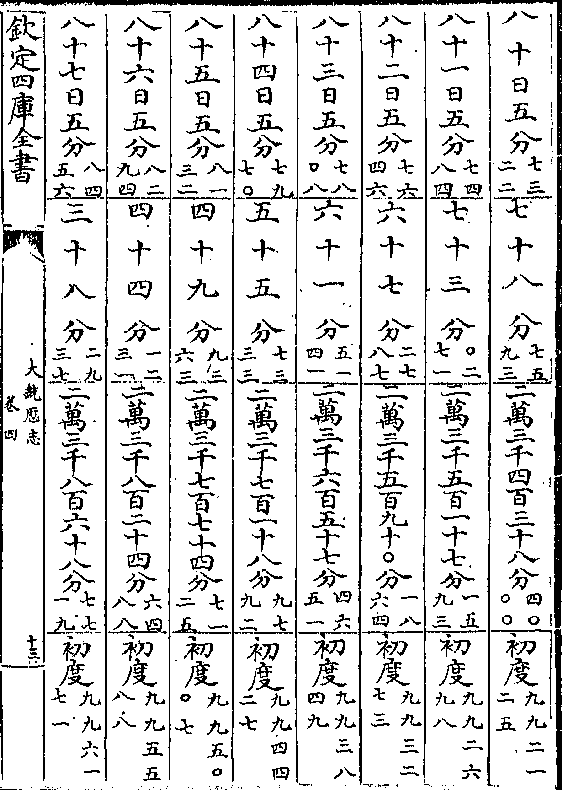 八十日五分七三二二七十八分七五九三二萬三千四百三十八分四〇〇〇初度九九二一二五
八十一日五分七四八四七十三分〇二七一二萬三千五百一十七分一五九三初度九九二六九八
八十二日五分七六四六六十七分二七八七二萬三千五百九十〇分一八六四初度九九三二七三
八十三日五分七八〇八六十一分五一四一二萬三千六百五十七分四六五一初度九九三八四九
八十四日五分七九七〇五十五分七三三三二萬三千七百一十八分九七九二初度九九四四二七
八十五日五分八一三二四十九分九三六三二萬三千七百七十四分七一二五初度九九五〇〇七
八十六日五分八二九四四十四分一二三一二萬三千八百二十四分六四八八初度九九五五八八
八十七日五分八四五六三十八分二九三七二萬三千八百六十八分七七一九初度九九六一七一
欽定四庫全書
大統厯志
卷四
十三